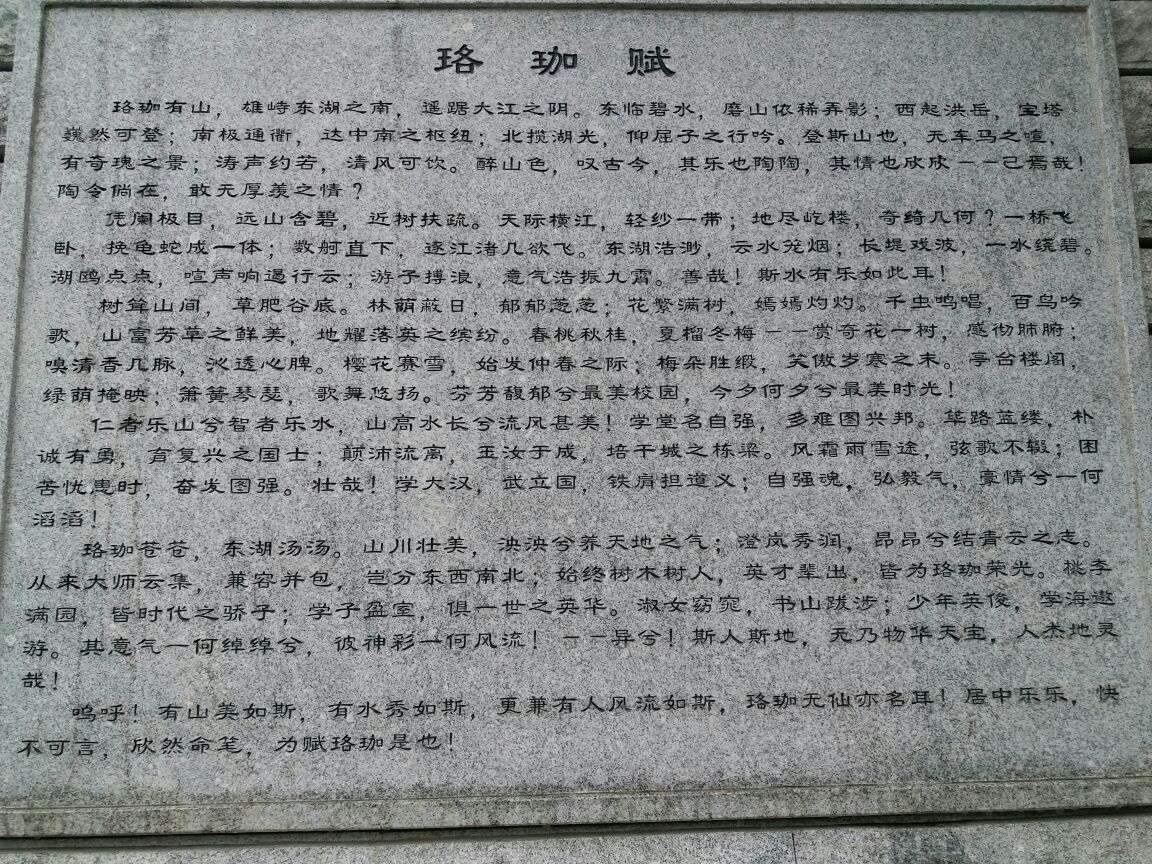 珞珈赋
珞珈有山，雄峙东湖之南，遥踞大江之阴。东临碧水，磨山依稀弄影；西起洪岳，宝塔
巍然可登；南极通衢，达中南之枢纽；北揽湖光，仰屈子之行吟。登斯山也，无车马之喧，
有奇瑰之景；涛声约若，清风可饮。醉山色，叹古今，其乐也陶陶，其情也欣欣－－己焉哉！
陶令倘在，敢无厚羡之情？
凭阑极目，远山含碧，近树扶疏。天际横江，轻纱一带；地尽屹楼，奇绮几何？一桥飞
卧，挽龟蛇成一体；数舸直下，逐江渚几欲飞。东湖浩渺，云水笼烟；长堤戏波，一水绕碧。
湖鸥点点，喧声响遏行云；游子搏浪，意气浩振九霄。善哉！斯水有乐如此耳！
树耸山间，草肥谷底。林荫蔽日，郁郁葱葱；花繁满树，嫣嫣灼灼。千虫鸣唱，百鸟吟
歌，山富芳草之鲜美，地耀落英之缤纷。春桃秋桂，夏榴冬梅－－赏奇花一树，感彻肺腑；
嗅清香几脉，沁透心脾。樱花赛雪，始发仲春之际；梅朵胜缎，笑傲岁寒之末。亭台楼阁，
绿荫掩映；箫簧琴瑟，歌舞悠扬。芬芳馥郁兮最美校园，今夕何夕兮最美时光！
仁者乐山兮智者乐水，山高水长兮流风甚美！学堂名自强，多难图兴邦。筚路蓝缕，朴
诚有勇，育复兴之国士；颠沛流离，玉汝于成，培干城之栋梁。风霜雨雪途，弦歌不辍；困
苦忧患时，奋发图强。壮哉！学大汉，武立国，铁肩担道义；自强魂，弘毅气，豪情兮一何
滔滔！
珞珈苍苍，东湖汤汤。山川壮美，泱泱兮养天地之气；澄岚秀润，昂昂兮结青云之志。
从来大师云集，兼容并包，岂分东西南北；始终树木树人，英才辈出，皆为珞珈荣光。桃李
满园，皆时代之骄子；学子盈室，俱一世之英华。淑女窈窕，书山跋涉；少年英俊，学海遨
游。其意气一何绰绰兮，彼神彩一何风流！－－异兮！斯人斯地，无乃物华天宝，人杰地灵
哉！
呜呼！有山美如斯，有水秀如斯，更兼有人风流如斯，珞珈无仙亦名耳！居中乐乐，快
不可言，欣然命笔，为赋珞珈是也！